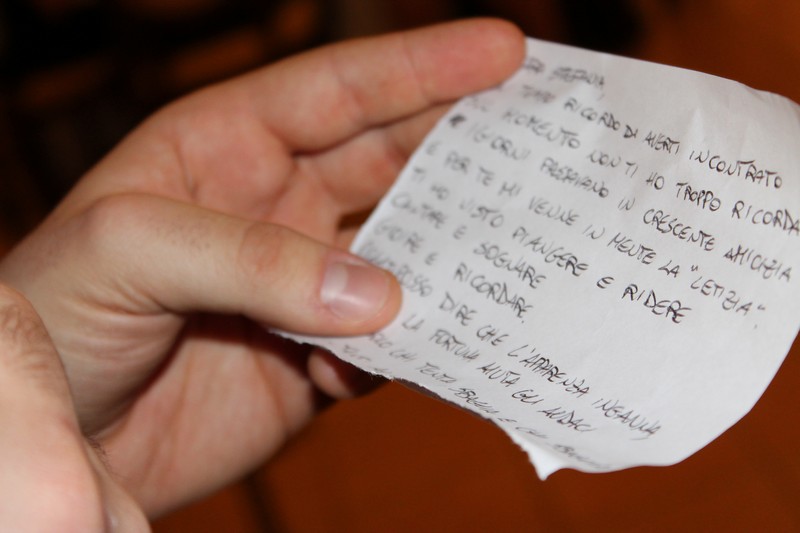 STEFANIA
RICORDO DI AVERTI INCONTRATO
MOMENTO NON TI HO TROPPO RICORDA
I GIORNI PASSAVANO IN CRESCENTE AMICIZIA
E PER TE MI VENNE IN MENTE LA "LETIZIA".
TI HO VISTO PIANGERE E RIDERE
CANTARE E SOGNARE
GIOIRE E RICORDARE.
POSSO DIRE CHE L'APPARENZA INGANNA
LA FORTUNA AIUTA GLI AUDACI
CHI TENTA